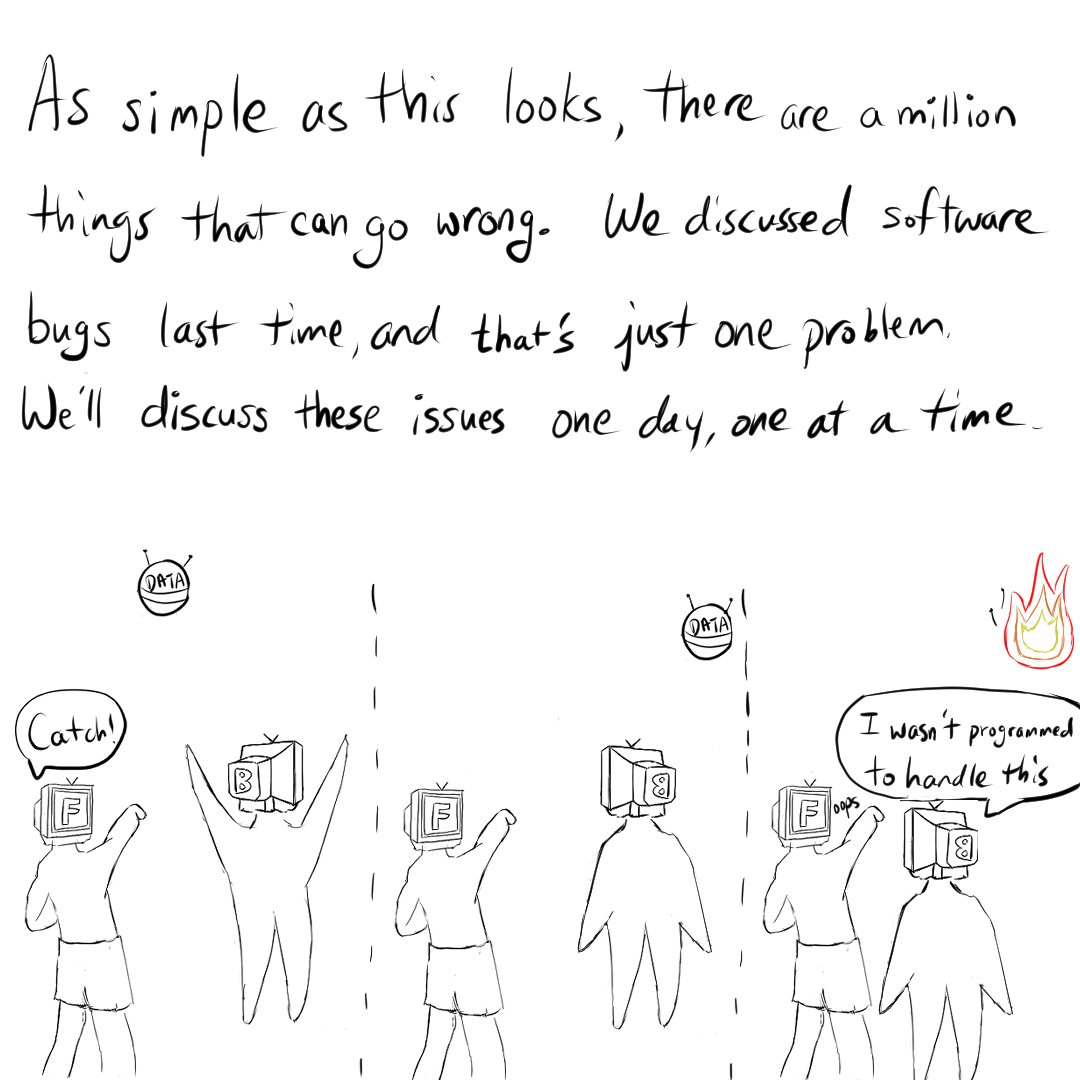 As simple as this looks, there are a million
things that can go wrong. We discussed software
bugs last time, and that's just one problem.
We'll discuss these issues one day, one at a time.
DATA
Catch!
F
B
DATA
F
B
I wasn't programmed
to handle this
F
oops
B